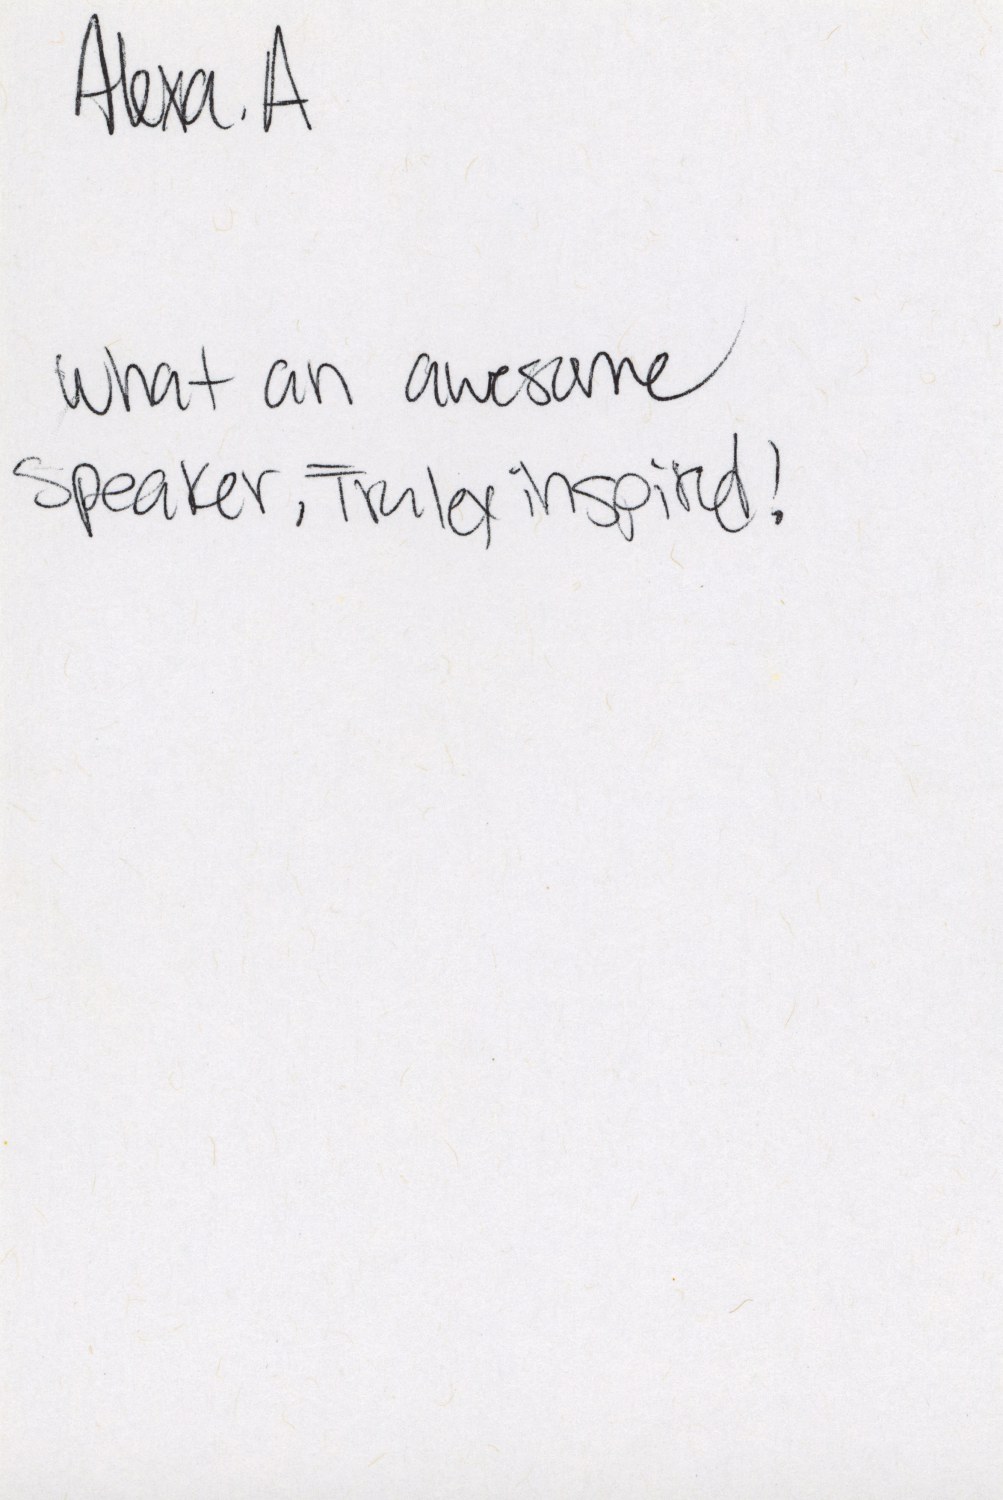 Alexa. A
what an awesome
speaker, Truley inspired!